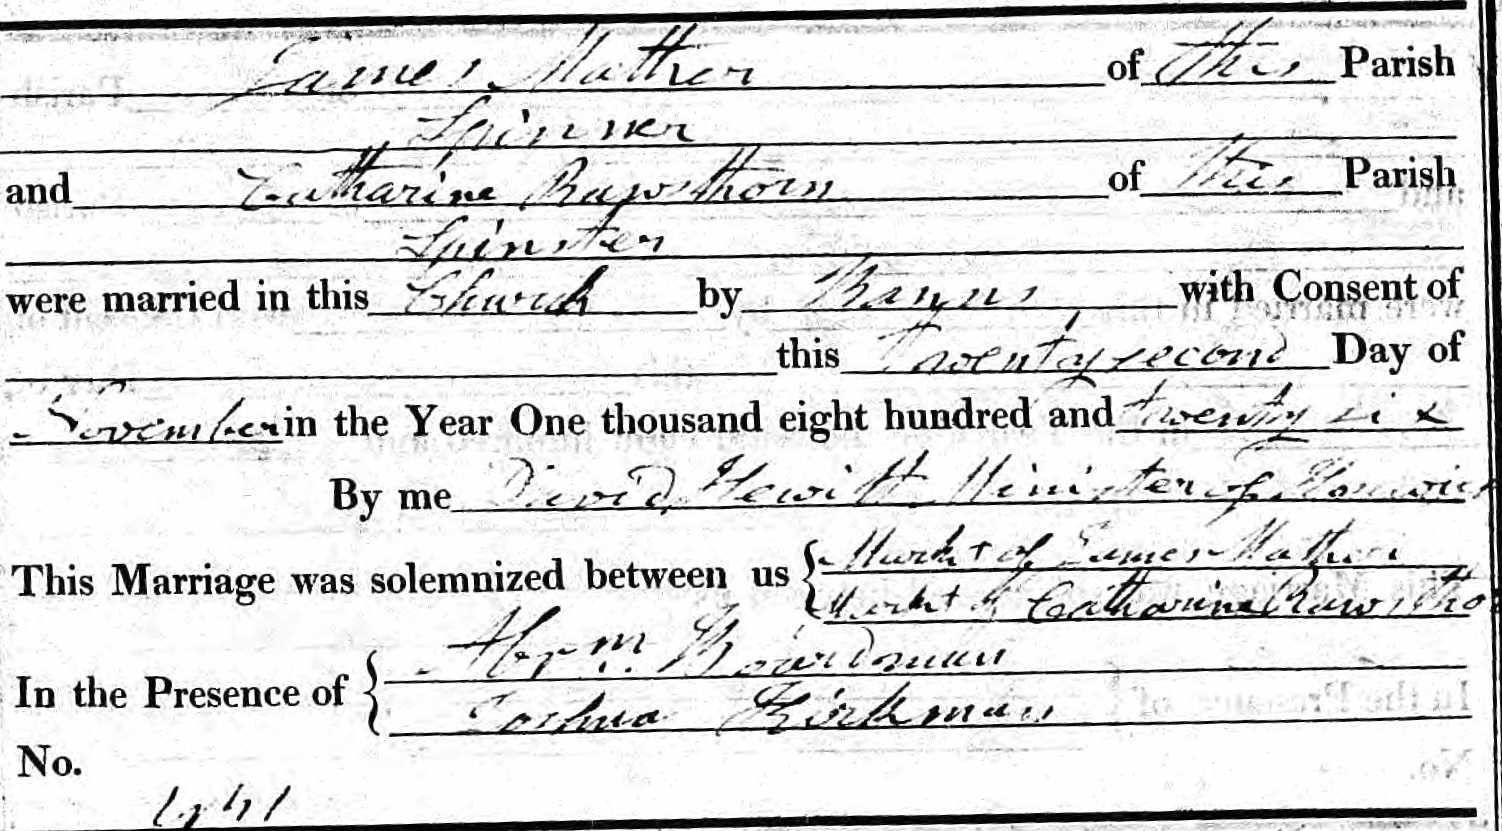 James Mather of this Parish
Spinner
and Catharine Rawsthorn of this Parish
Spinster
were married in this Church by Banns with Consent of
this Twenty second Day of
November in the Year One thousand eight hundred and twenty six
By me David Hewitt Minister of Horwich
This Marriage was solemnized between us { Mark + of James Mather
Mark + of Catharine Rawstho
In the Presence of { Abrm. Boardman
Joshua Kirkman
No.